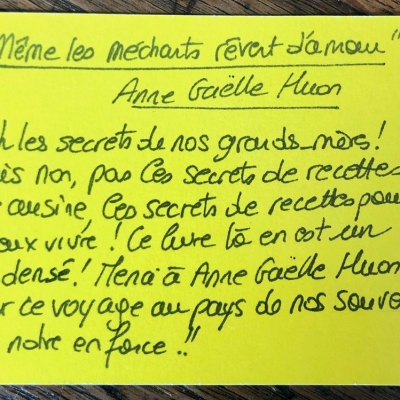 Même les méchants rêvent d'amour"
Anne Gaëlle Huon
h les secrets de nos grands-mères!
ès non, pas ces secrets de recettes
cuisine, ces secrets de recettes pour
eux vivre! Ce livre là en est un
densé! Merci à Anne Gaëlle Huon
r ce voyage au pays de nos souve
notre enfance.."